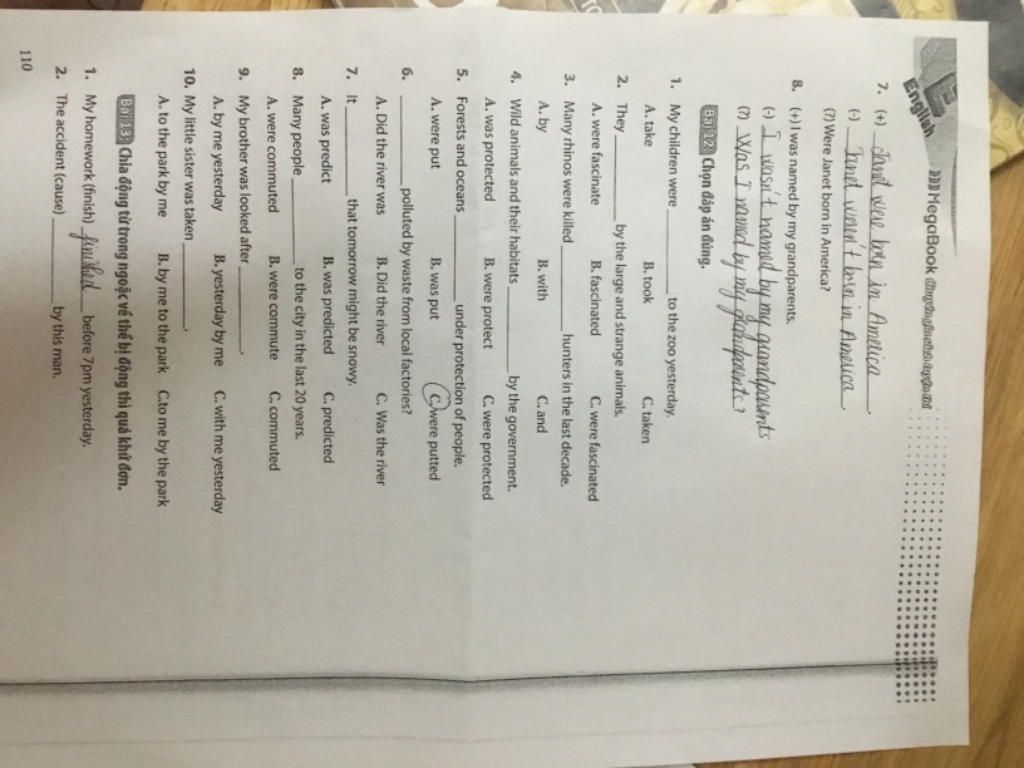 English
MegaBook
7. (+) Janet were born in America.
(-) Janet weren't born in America.
(?) Were Janet born in America?
8. (+) I was named by my grandparents.
(-) I wasn't named by my grandparents
(?) Was I named by my grandparents?
Bài 12: Chọn đáp án đúng.
1. My children were ________ to the zoo yesterday.
A. take B. took C. taken
2. They ________ by the large and strange animals.
A. were fascinate B. fascinated C. were fascinated
3. Many rhinos were killed ________ hunters in the last decade.
A. by B. with C. and
4. Wild animals and their habitats ________ by the government.
A. was protected B. were protect C. were protected
5. Forests and oceans ________ under protection of people.
A. were put B. was put C. were putted
6. ________ polluted by waste from local factories?
A. Did the river was B. Did the river C. Was the river
7. It ________ that tomorrow might be snowy.
A. was predict B. was predicted C. predicted
8. Many people ________ to the city in the last 20 years.
A. were commuted B. were commute C. commuted
9. My brother was looked after ________.
A. by me yesterday B. yesterday by me C. with me yesterday
10. My little sister was taken ________.
A. to the park by me B. by me to the park C.to me by the park
Bài 13: Chia động từ trong ngoặc về thể bị động thì quá khứ đơn.
1. My homework (finish) finished before 7pm yesterday.
2. The accident (cause) ________ by this man.
110